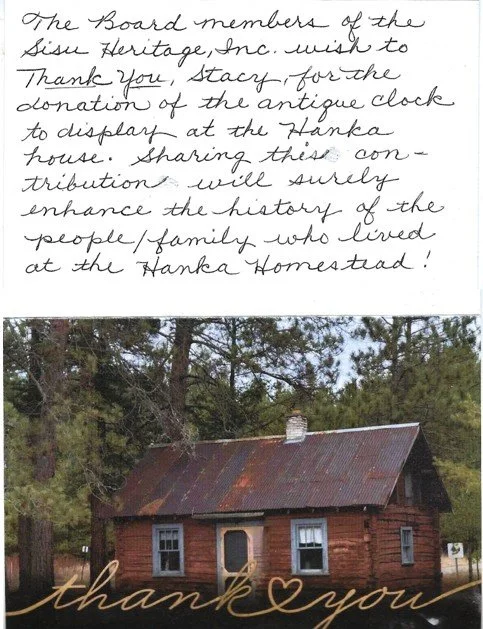 The Board members of the
Sisu Heritage, Inc. wish to
Thank You, Stacy, for the
donation of the antique clock
to display at the Hanka
house. Sharing this con-
tribution will surely
enhance the history of the
people/family who lived
at the Hanka Homestead!
thank you